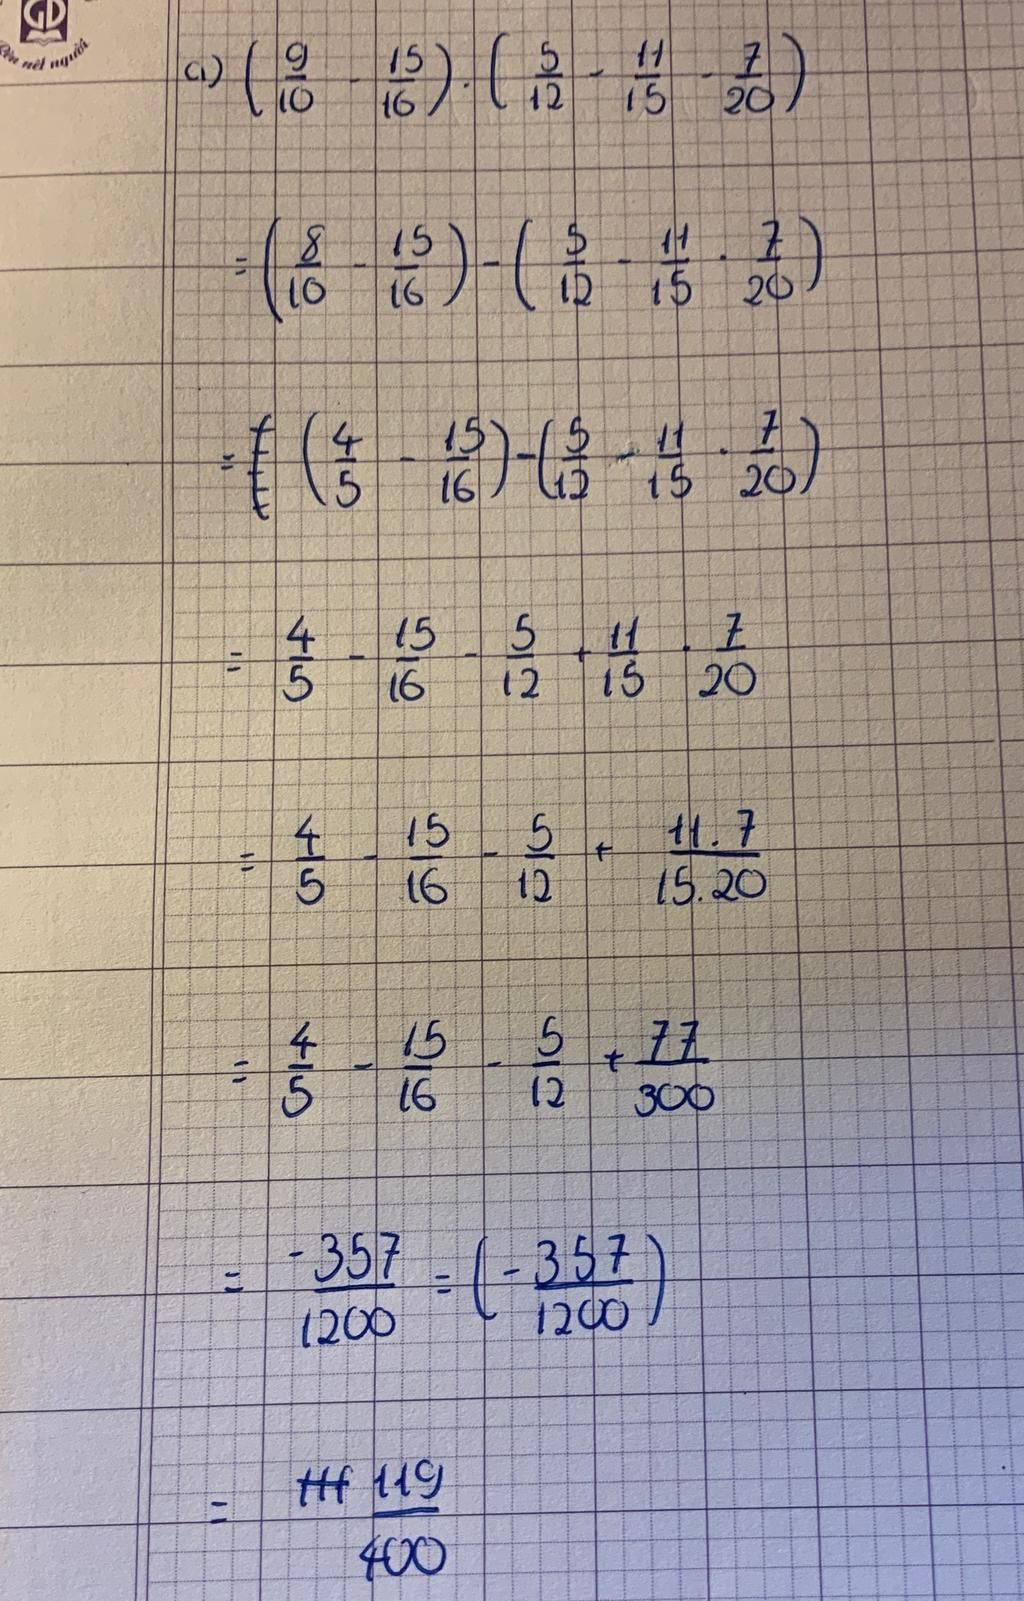 GD
Rèn nét người
c) (9/10 - 15/16) . (5/12 - 11/15 - 7/20)
= (8/10 - 15/16) - (5/12 - 11/15 . 7/20)
= (4/5 - 15/16) - (5/12 - 11/15 . 7/20)
= 4/5 - 15/16 - 5/12 + 11/15 . 7/20
= 4/5 - 15/16 - 5/12 + 11.7/15.20
= 4/5 - 15/16 - 5/12 + 77/300
= -357/1200 = (-357/1200)
= 119/400